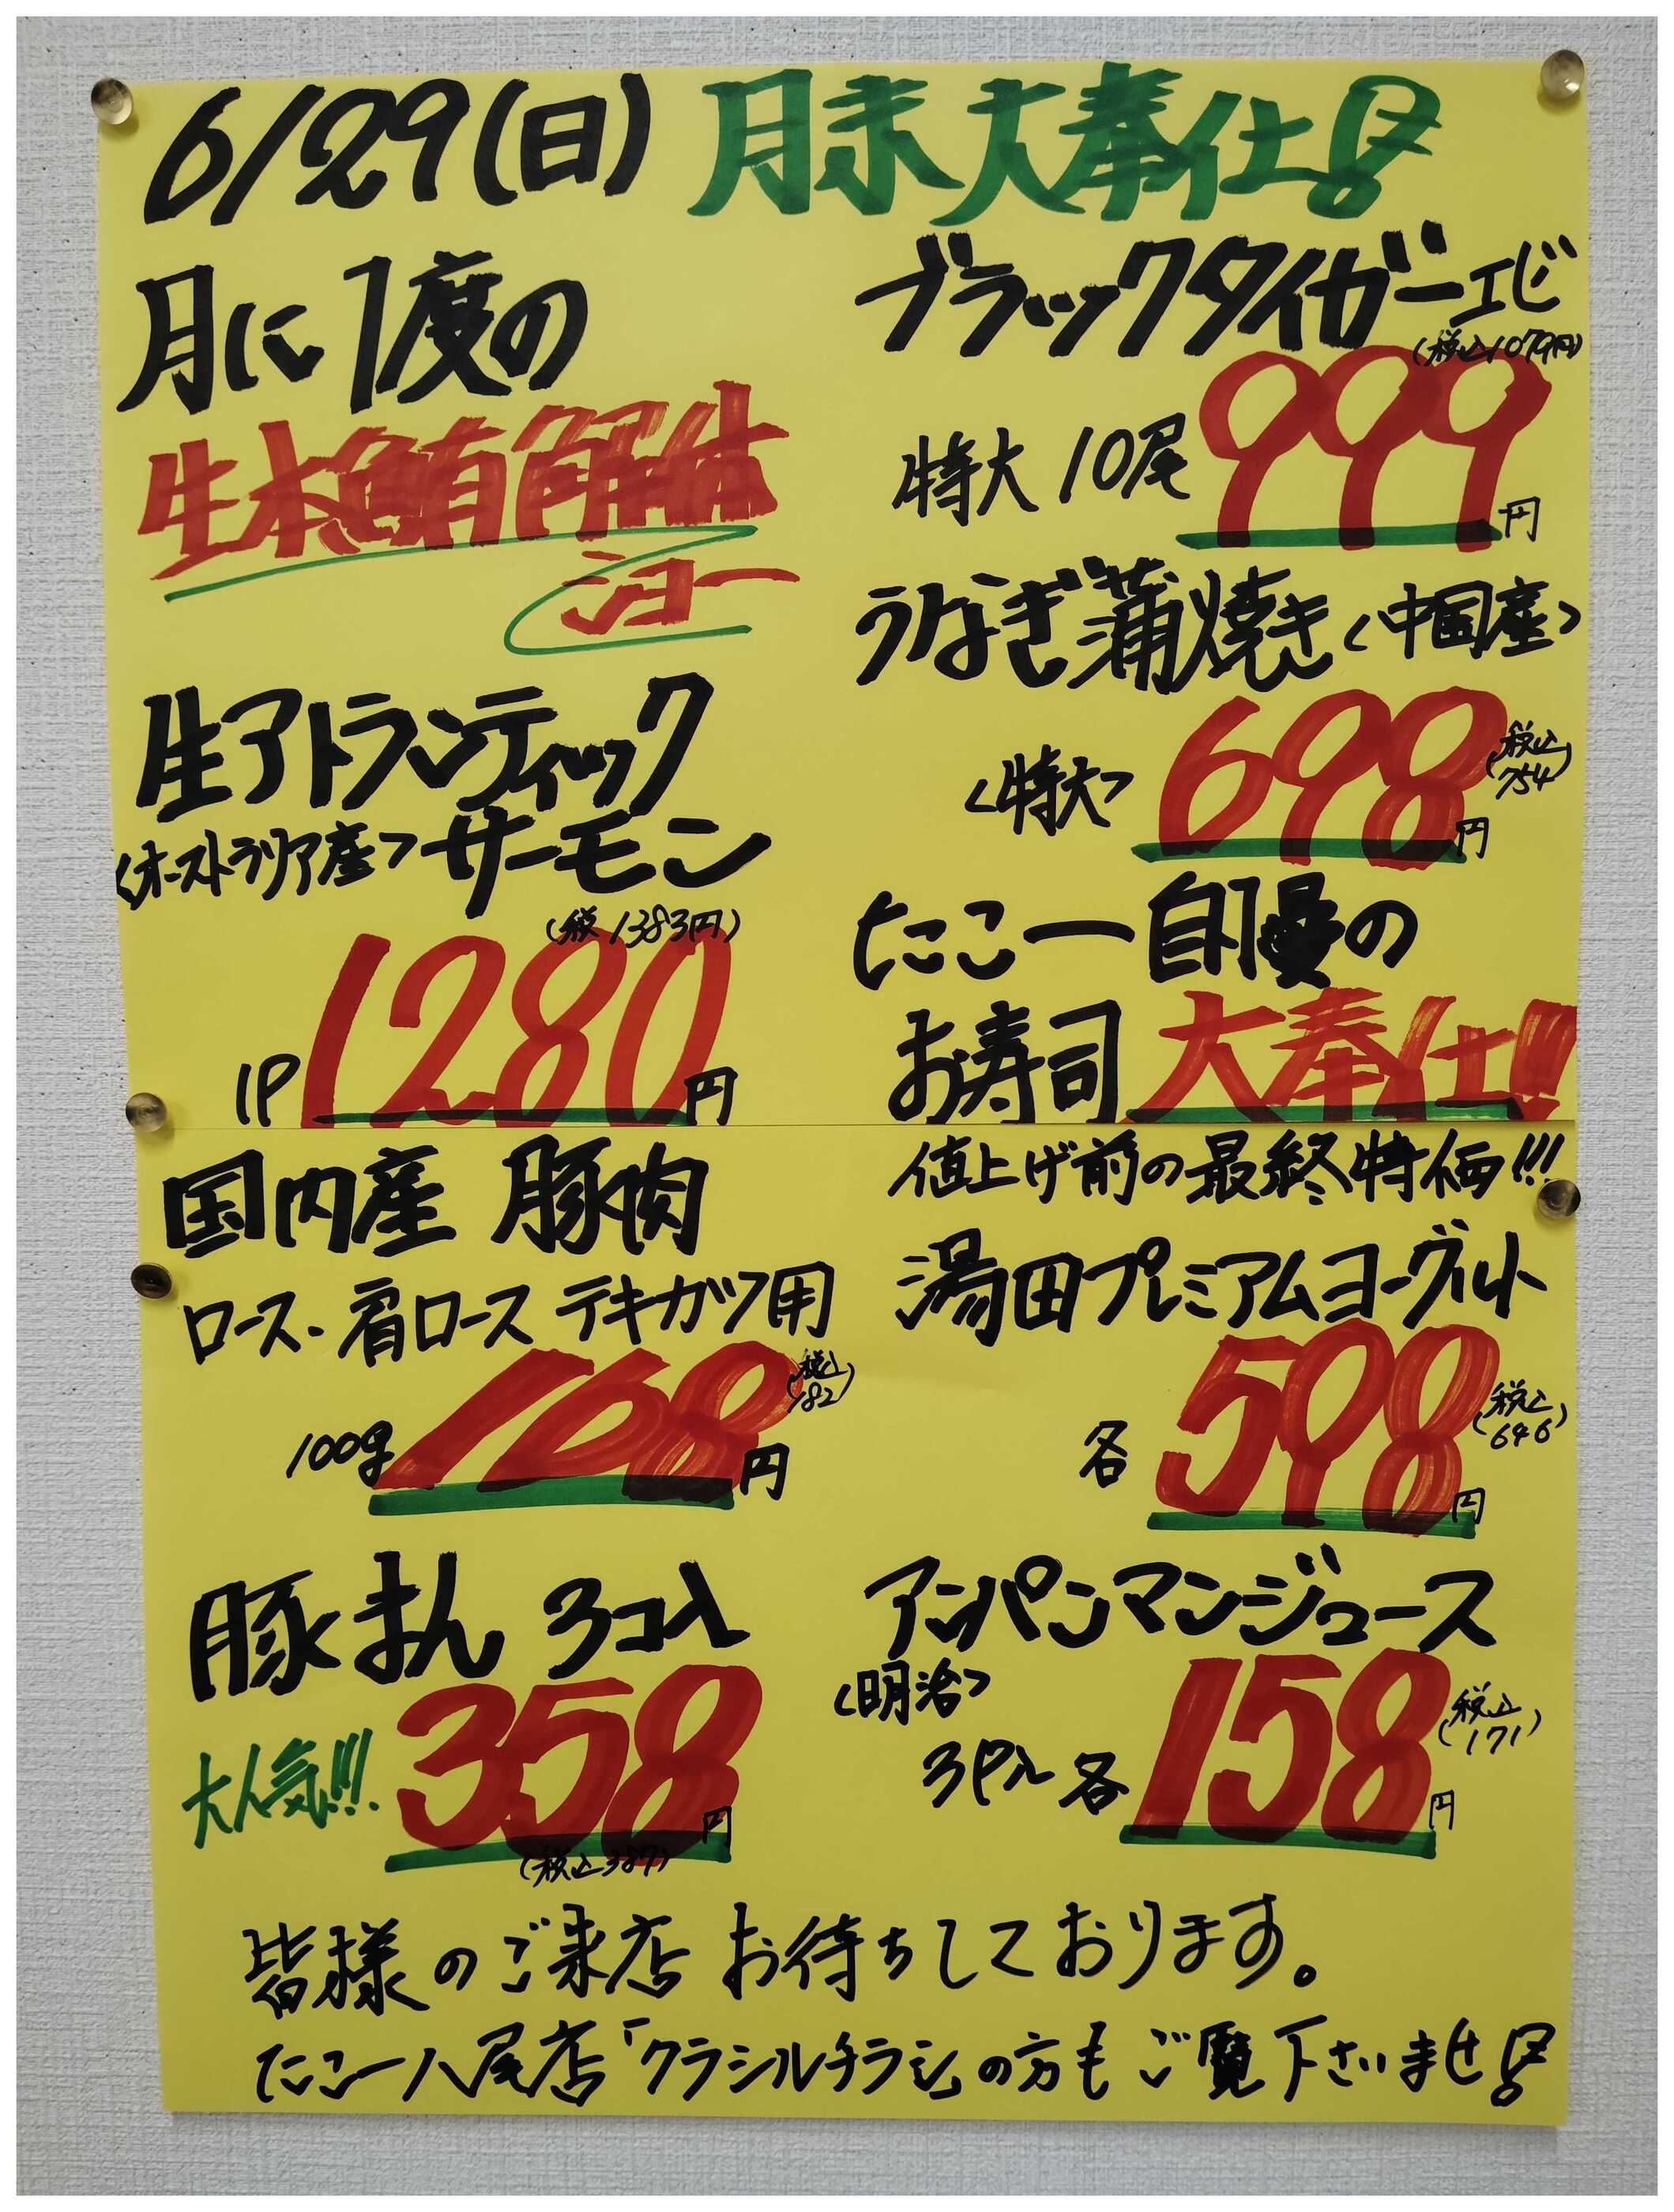 6/29(日) 月末大奉仕!
月に1度の
生本鮪解体
ショー
生アトランティック
<オーストラリア産>サーモン
(税 1383円)
1P 1280円
ブラックタイガーエビ
(税込1079円)
特大 10尾 999円
うなぎ蒲焼き<中国産>
<特大> 698円 (税込754)
たこ一自慢の
お寿司大奉仕!!
国内産 豚肉
ロース・肩ロース テキカツ用
100g 168円 (税込182)
豚まん 3コ入
大人気!!! 358円
(税込387)
値上げ前の最終特価!!!
湯田プレミアムヨーグルト
各 598円 (税込646)
アンパンマンジュース
<明治>
3P入 各 158円 (税込171)
皆様のご来店 お待ちしております。
たこ一八尾店「クラシルチラシ」の方もご覧下さいませ!